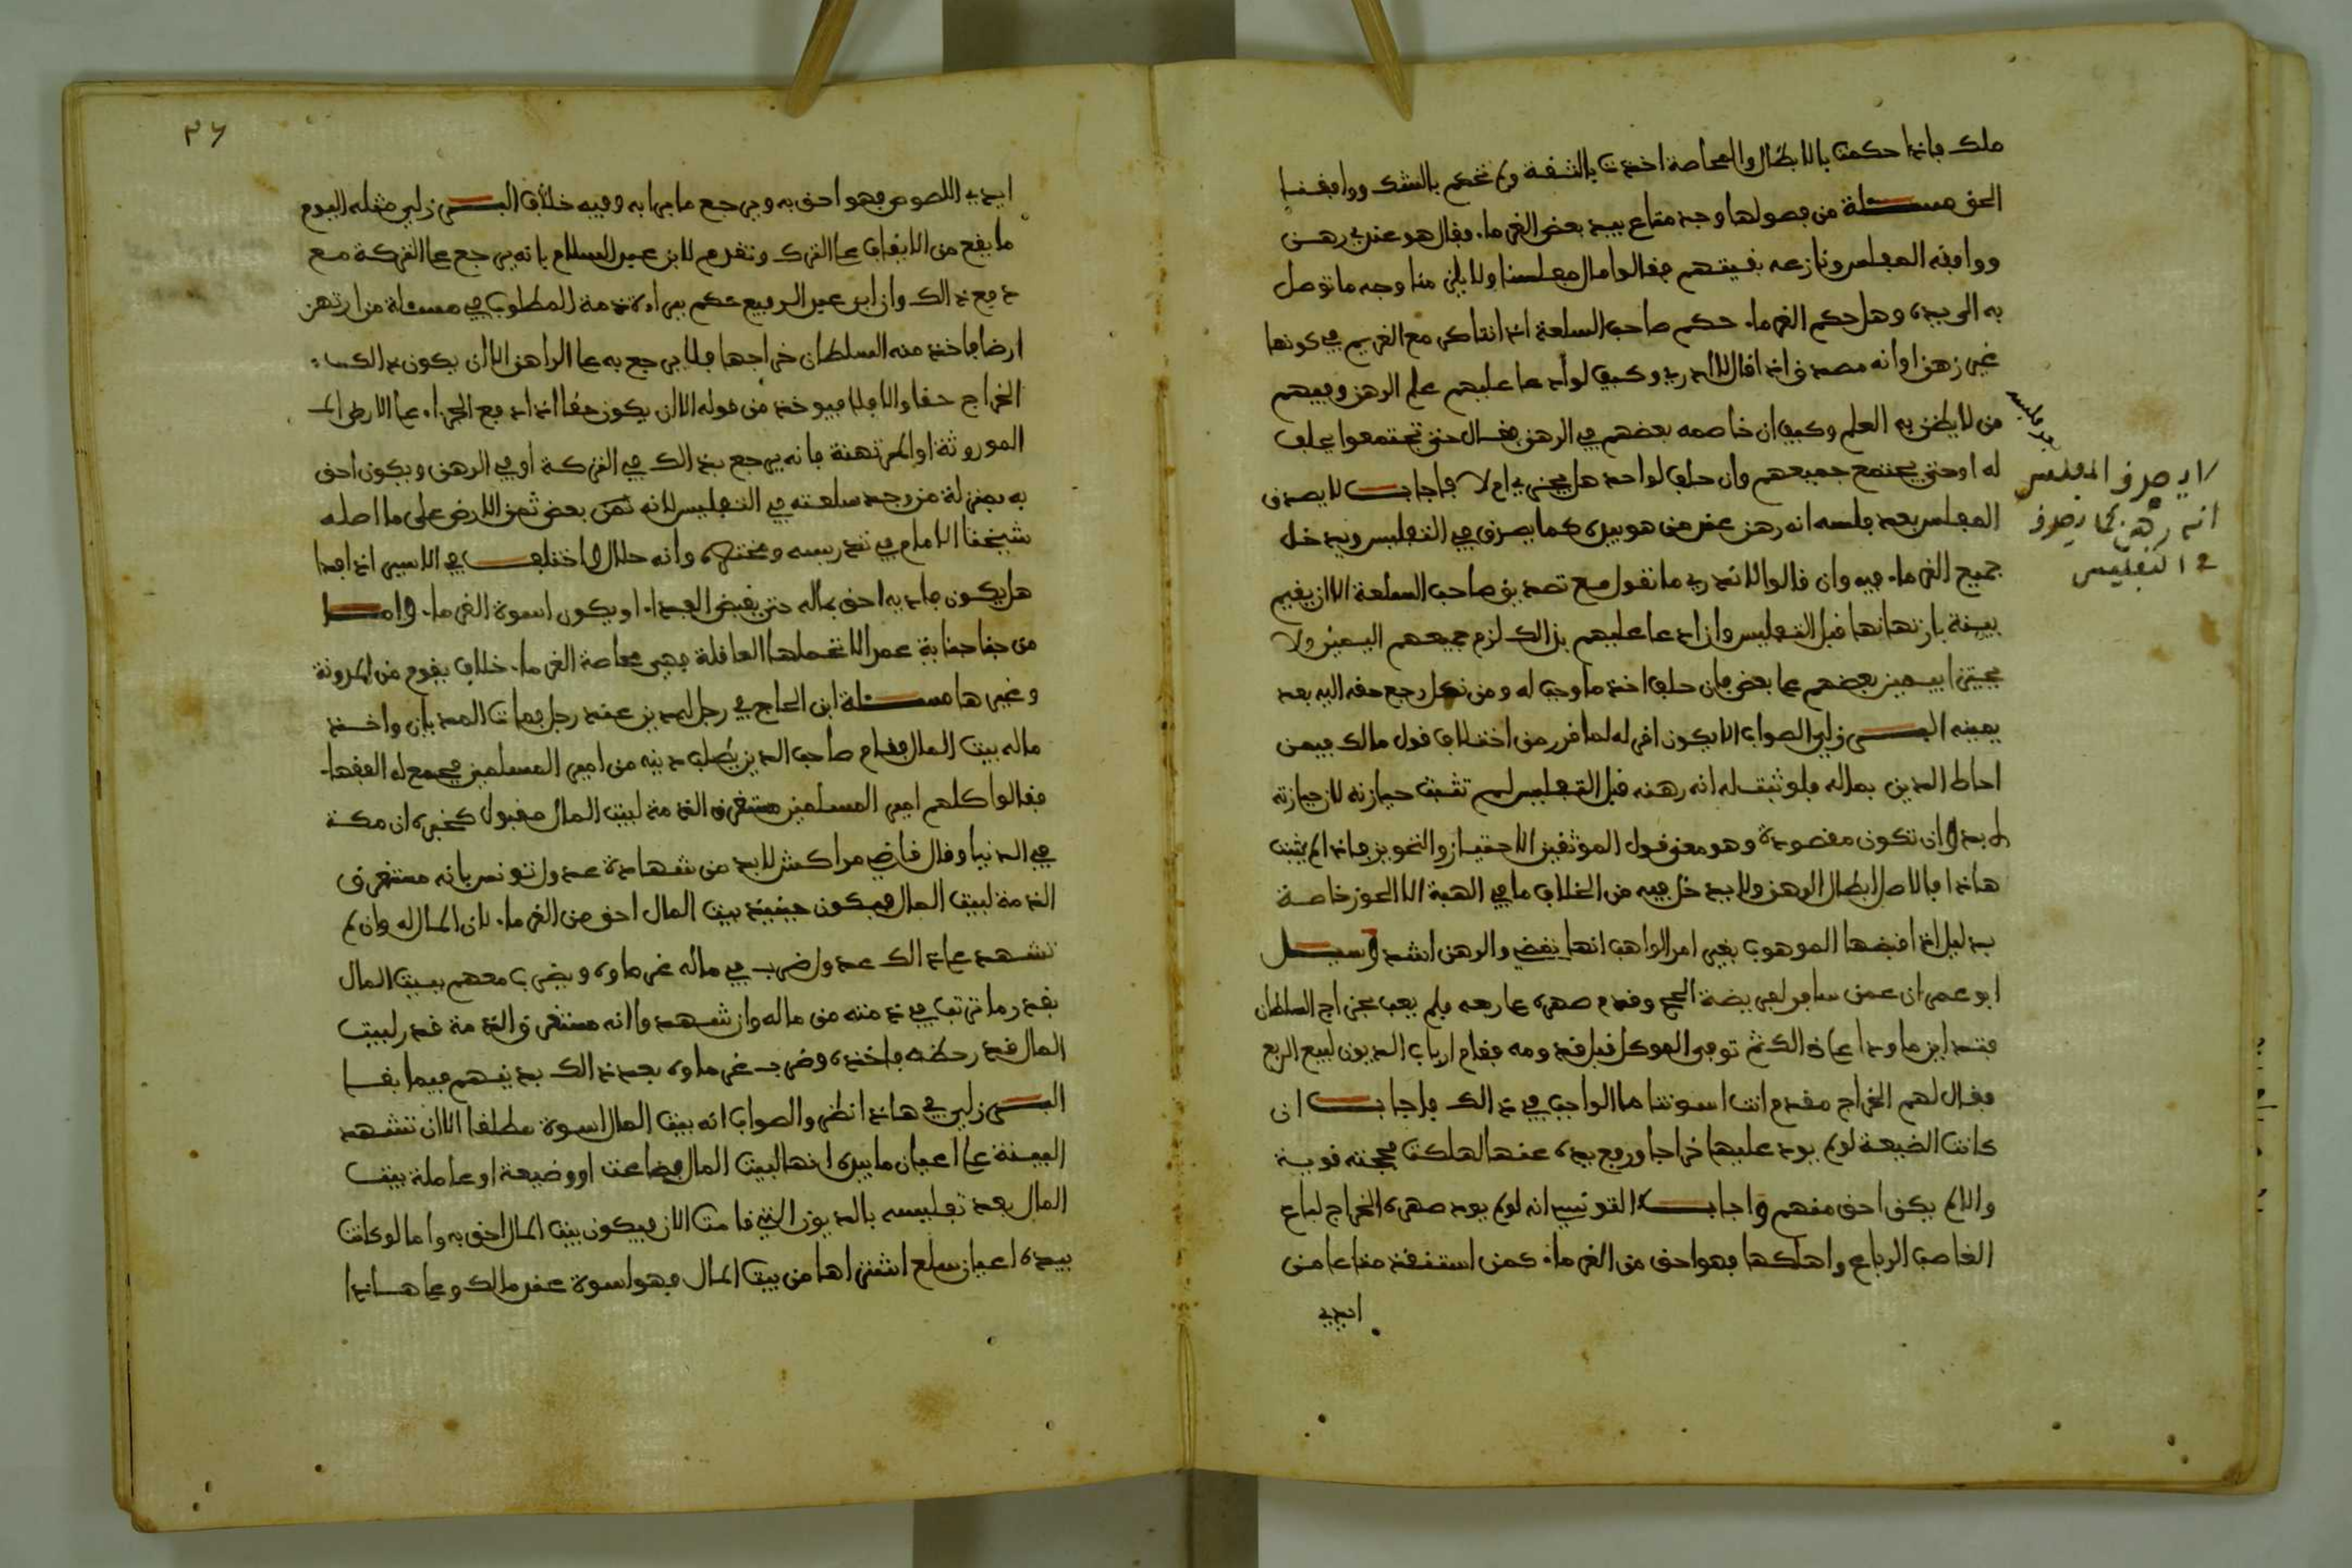 ملك فاذا حكمت بالابطال والمحاصة اخذت بالثقة ولم تحكم بالشك ووافقنا
الحق مسئلة من فصولها وجد متاع بيد بعض الغرماء فقال هو عندي رهن
ووافقه المفلس ونازعه بقيتهم فقالوا مال مفلسنا ولا يلزمنا وجه ما توصل
به الى يده وهل حكم الغرماء حكم صاحب السلعة اذا تناكر مع الغريم في كونها
غير رهن او انه مصدق اذا قال لا ادري وكيف لو ادعا عليهم علم الرهن وفيهم
من لا يظن به العلم وكيف ان خاصمه بعضهم في الرهن فقال حتى تجتمعوا يحلف
له او حتى يجتمع جميعهم وان حلف لواحد هل يجزي ام لا فاجاب لا يصدق
المفلس بعد فلسه انه رهن عند من هو بيده كما يصدق في التفليس ويدخل
جميع الغرماء فيه وان قالوا لا ندري ما تقول مع تصديق صاحب السلعة الا ان يقيم
بينة بارتهانها قبل التفليس وان ادعا عليهم بذالك لزم جميعهم اليمين ولا
يجتزا بيمين بعضهم عن بعض فان حلف اخذ ما وجب له ومن نكل رجع حقه اليه بعد
يمينه البرزلي الصواب الا يكون اقر له لما قرر من اختلاف قول مالك فيمن
احاط الدين بماله فلو ثبت له انه رهنه قبل التفليس لم تثبت حيازته لان حيازته
لا بد وان تكون مقصودة وهو معنى قول الموثقين الاحتياز والتحويز فاذا لم يثبت
هاذا فالاصل ابطال الرهن ولا يدخل فيه من الخلاف ما في الهبة الا الحوز خاصة
بدليل اذا قبضها الموهوب بغير امر الواهب انها تقضي والرهن اشد وسئل
ابو عمران عمن سافر لفريضة الحج وقدم صهره على ربعه فلم يعب بخراج السلطان
فتداين ما ودا على ذالك ثم توفي الموكل قبل قدومه فقام ارباب الديون لبيع الربع
فقال لهم الخراج مقدم انت اسوتنا ما الواجب في ذالك فاجاب ان
كانت الضيعة لو لم يود عليها خراجا ورفع يده عنها لهلكت فحجته قوية
والا لم يكن احق منهم واجاب التونسي انه لو لم يود صهره الخراج لباع
الغاصب الرباع واهلكها فهو احق من الغرماء كمن استنقذ متاعا من
ايدي
لا يصدق المفلس
انه رهن كما يصدق
في التفليس
ايدي اللصوص فهو احق به ويرجع ما برا به وفيه خلاف البرزلي مثله اليوم
ما يقع من الانفاق على الترك وتقدم لابن عبد السلام بانه يرجع على التركة مع
دفع ذالك وان ابن عبد الرفيع حكم ببراءة ذمة المطلوب في مسئلة من ارتهن
ارضا فاخذ منه السلطان خراجها فلا يرجع به على الراهن الا ان يكون ذالك
الخراج حقا والا فلا فيوخذ من قوله الا ان يكون حقا اذا دفع الجزاء على الارض
الموروثة او المرتهنة فانه يرجع بذالك في التركة او في الرهن ويكون احق
به بمنزلة من وجد سلعته في التفليس لانه ثمن بعض ثمن الارض على ما اصله
شيخنا الامام في تدريسه ومختصره وانه حلال واختلف في الاسير اذا فدا
هل يكون فاديه احق بماله حتى يقبض الفداء او يكون اسوة الغرماء واما
من جنا جناية عمد الا تحملها العاقلة ففي محاصة الغرماء خلاف يقوم من المدونة
وغيرها مسئلة ابن الحاج في رجل له دين عند رجل فمات المديان واخذ
ماله بيت المال فقام صاحب الدين يطلب دينه من امير المسلمين فجمع له الفقهاء
فقالوا كلهم امير المسلمين مستغرق الذمة لبيت المال مقبول كخبره ان مكة
في الدنيا وقال قاضي مراكش لا بد من شهادة عدول تونس بانه مستغرق
الذمة لبيت المال فيكون حينئذ بيت المال احق من الغرماء لان المال له وان لم
تشهد على ذالك عدول ضرب في ماله غرماوه ويضرب معهم ببيت المال
بقدر ما ترتب في ذمته من ماله وان شهدوا انه مستغرق الذمة قدر لبيت
المال قدر حظه فاخذه وضرب غرماوه بعد ذالك بدينهم فيما بقا
البرزلي في هاذا نظر والصواب انه بيت المال اسوة مطلقا الا ان تشهد
البينة على اعيان ما بيده انها لبيت المال بضاعت او وضيعة او عاملة بيت
المال بعد تفليسه بالديون التي قامت الان فيكون بيت المال احق به واما لو كانت
بيده اعيان سلع اشتراها من بيت المال فهو اسوة عند مالك وعلى هاذا